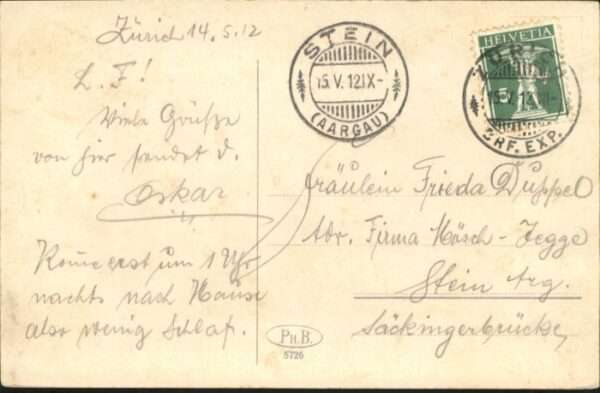 Zürich 14.5.12
L. F!
Viele Grüsse
von hier sendet d.
Oskar
Komme erst um 1 Uhr
nachts nach Hause
also wenig Schlaf.
STEIN
15. V. 12. IX-
(AARGAU)
HELVETIA
5
ZÜRICH
BRF. EXP.
Fräulein Frieda Duppel
Adr. Firma Hösch-
Stein Arg.
Säckingerbrücke
PH.B.
5726